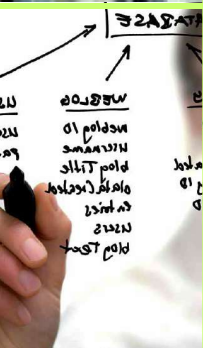 DATABASE
WEBLOG
weblog ID
username
blog Title
dataCreated
Entries
users
blog Text
US
use
pa
S
ated
ID
D